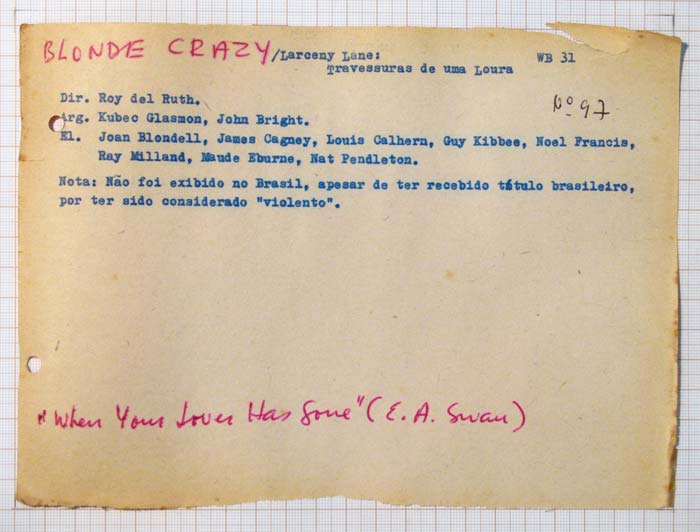 BLONDE CRAZY/Larceny Lane: WB 31
Travessuras de uma Loura
Dir. Roy del Ruth.
Nº 97
Arg. Kubec Glasmon, John Bright.
El. Joan Blondell, James Cagney, Louis Calhern, Guy Kibbee, Noel Francis,
Ray Milland, Maude Eburne, Nat Pendleton.
Nota: Não foi exibido no Brasil, apesar de ter recebido título brasileiro,
por ter sido considerado "violento".
"When Your Lover Has Gone" (E. A. Swan)